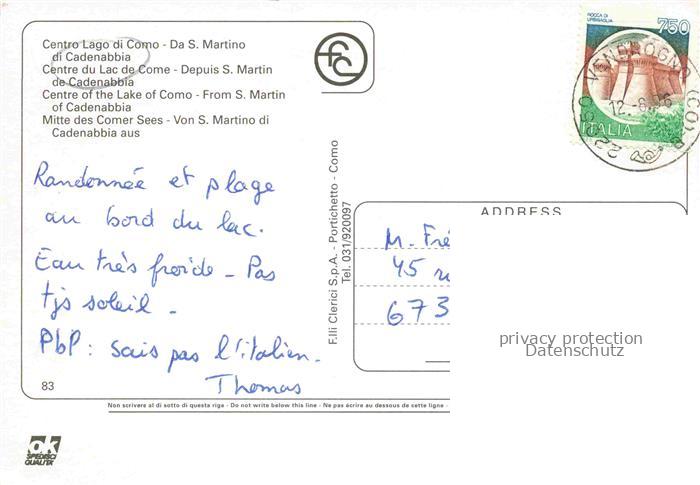 Centro Lago di Como - Da S. Martino
di Cadenabbia
Centre du Lac de Come - Depuis S. Martin
de Cadenabbia
Centre of the Lake of Como - From S. Martin
of Cadenabbia
Mitte des Comer Sees - Von S. Martino di
Cadenabbia aus
Randonnée et plage
au bord du lac.
Eau très froide - Pas
tjs soleil -
PbP : sais pas l'italien.
Thomas
83
Non scrivere al di sotto di questa riga - Do not write below this line - Ne pas écrire au dessous de cette ligne -
OK
SPEDISCI
QUALITÀ
F.lli Clerici S.p.A. - Portichetto - Como
Tel. 031/920097
ROCCA DI
URBISAGLIA
750
ITALIA
22060 VENEROGNO (CO)
12.-6.
ADDRESS
M. Fré
45
673
privacy protection
Datenschutz